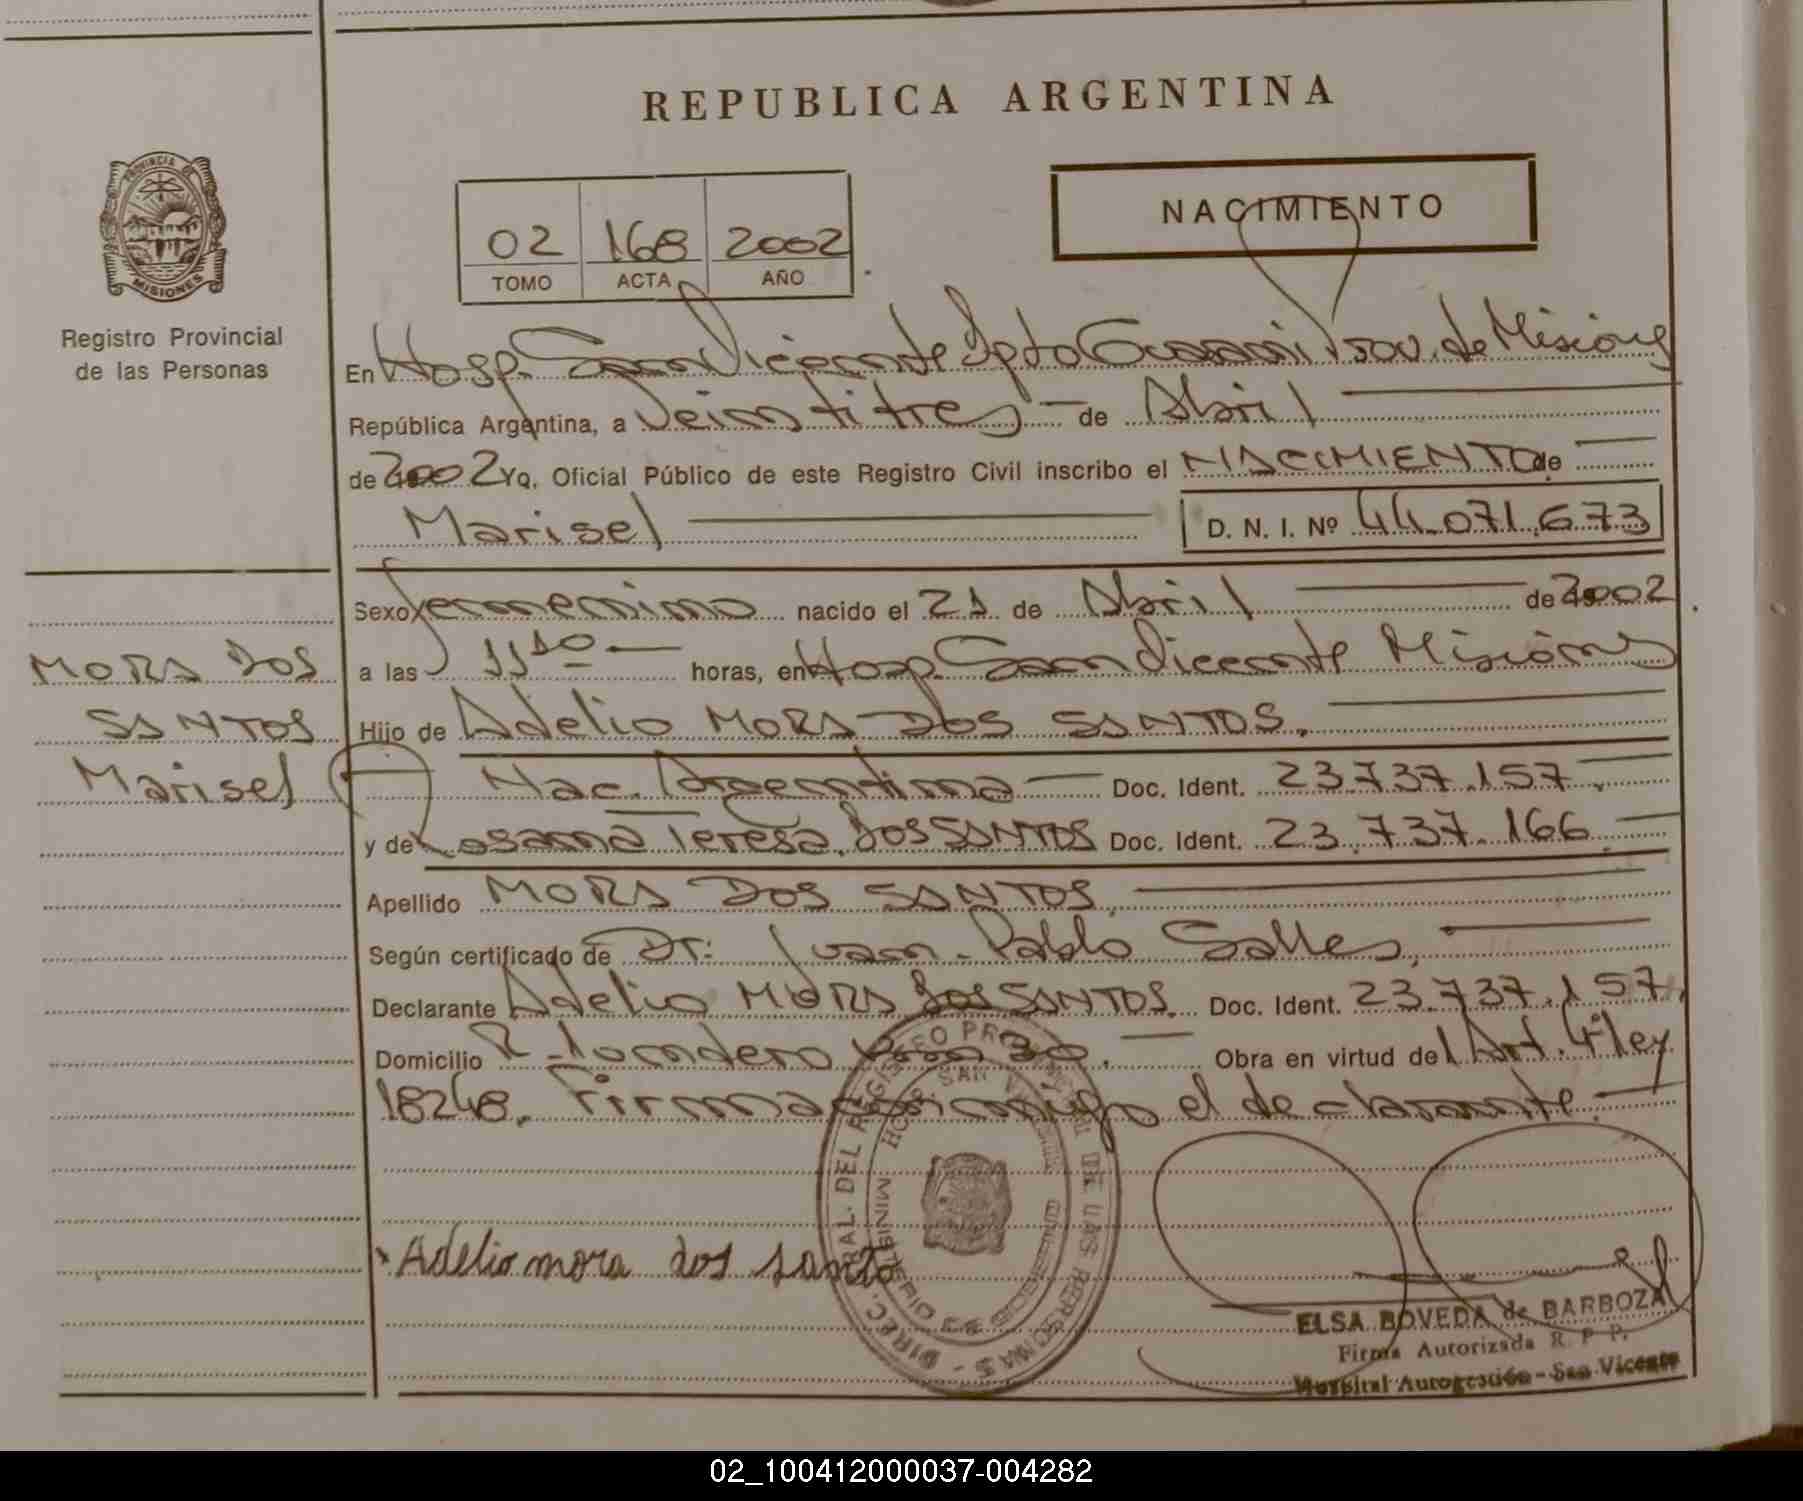 REPUBLICA ARGENTINA
PROVINCIA DE MISIONES
Registro Provincial
de las Personas
02 168 2002
TOMO ACTA AÑO
NACIMIENTO
En Hosp. San Vicente Dpto Guarani Prov. de Misiones
República Argentina, a Veintitres de Abril
de 2002 Yo, Oficial Público de este Registro Civil inscribo el NACIMIENTO de
Marisel D. N. I. Nº 44.071.673
Sexo femenino nacido el 21 de Abril de 2002
a las 11 10 horas, en Hosp. San Vicente Misiones
Hijo de Adelio MORA DOS SANTOS.
Nac. Argentina Doc. Ident. 23.737.157
y de Rosana Teresa DOS SANTOS Doc. Ident. 23.737.166
Apellido MORA DOS SANTOS
Según certificado de Dr: Juan Pablo Salles
Declarante Adelio MORA DOS SANTOS. Doc. Ident. 23.737.157
Domicilio 30. Obra en virtud del Art. 4º ley
18248. Firma conmigo el declarante.
MORA DOS
SANTOS
Marisel
Adelio mora dos santo
DIREC. GRAL. DEL REGISTRO PROVINCIAL DE LAS PERSONAS
HOSP. SAN VICENTE
MINISTERIO DE GOBIERNO
ELSA BOVEDA de BARBOZA
Firma Autorizada R. P. P.
Hospital Autogestión - San Vicente
02_100412000037-004282